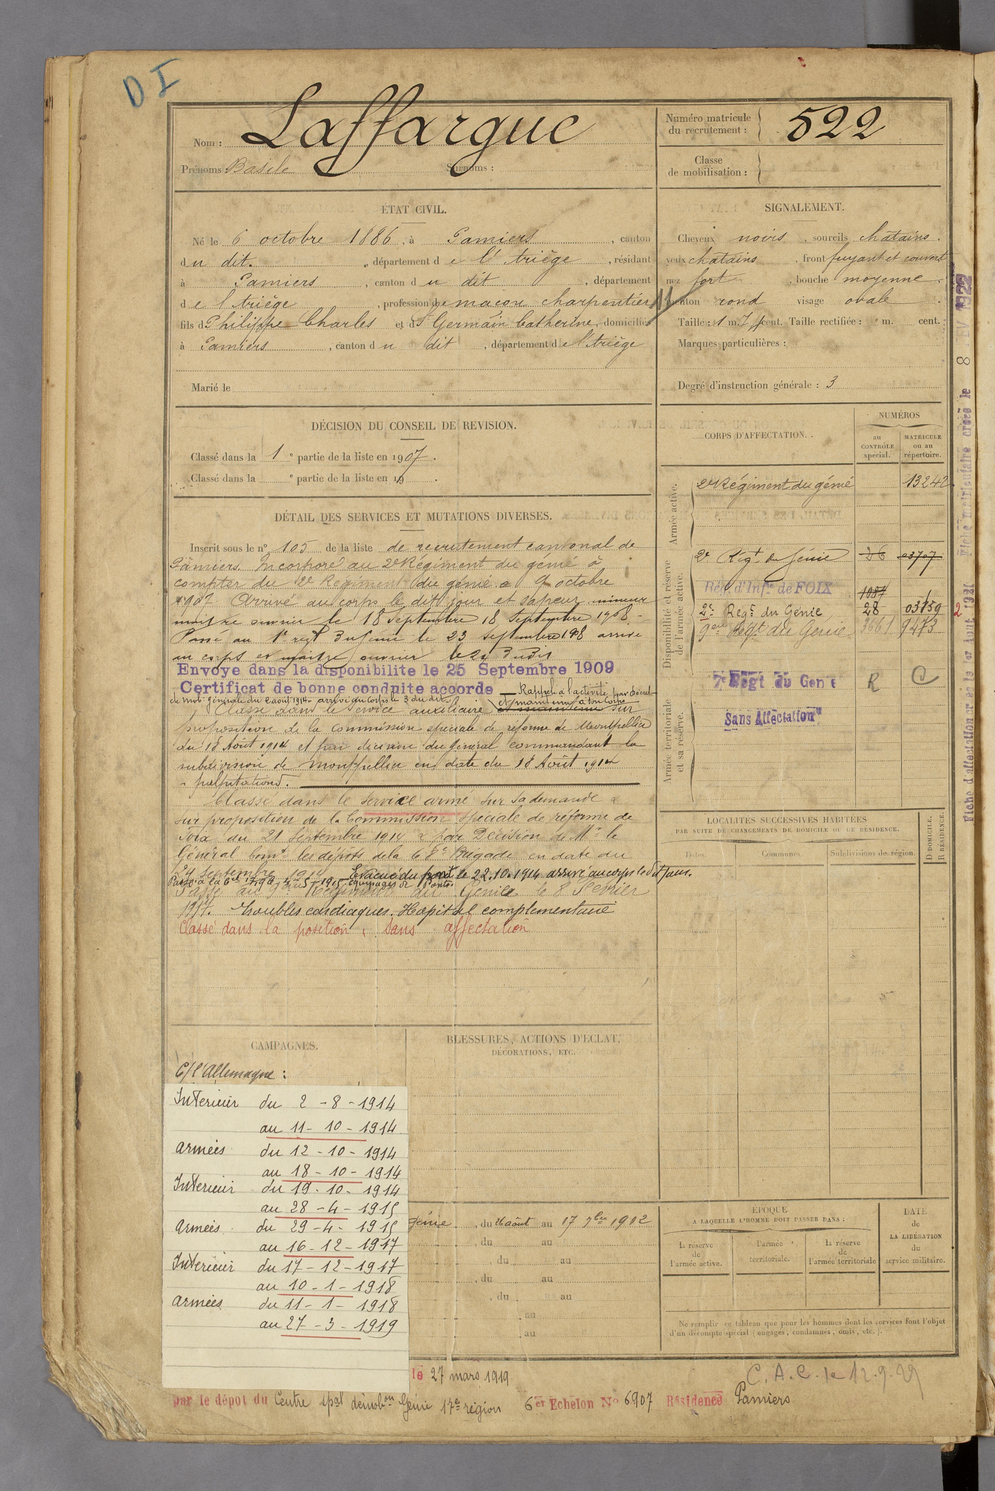 D I
Nom : Laffargue
Prénoms : Basile Surnoms :
Numéro matricule
du recrutement : 522
Classe
de mobilisation :
ÉTAT CIVIL.
Né le 6 octobre 1886, à Pamiers, canton
du dit., département de l'Ariège, résidant
à Pamiers, canton du dit, département
de l'Ariège, profession de maçon charpentier
fils de Philippe Charles et de St Germain Catherine, domiciliés
à Pamiers, canton du dit, département de l'Ariège
Marié le
SIGNALEMENT.
Cheveux noirs, sourcils chatains.
yeux chatains, front fuyant et
nez fort, bouche moyenne
menton rond visage ovale
Taille : 1 m. cent. Taille rectifiée : m. cent.
Marques particulières :
Degré d'instruction générale : 3
DÉCISION DU CONSEIL DE REVISION.
Classé dans la 1e partie de la liste en 1907.
Classé dans la e partie de la liste en 19
DÉTAIL DES SERVICES ET MUTATIONS DIVERSES.
Inscrit sous le n° 105 de la liste de recrutement cantonal de
Pamiers. Incorporé au 2e Régiment du génie à
compter du 2e Régiment du génie a 9 octobre
1907 Arrivé au corps le dit jour et sapeur mineur
maitre ouvrier le 18 Septembre 18 Septembre 1908.
Passé au 1er regt le 23 Septembre arrivé
au corps et maitre ouvrier le
Envoye dans la disponibilite le 25 Septembre 1909
Certificat de bonne conduite accorde Rappelé à l'activité par décret
de mob. générale du 2 août 1914 arrivé au corps le 3 du dit et maintenu à Toulouse
Classé dans le service auxiliaire sur
proposition de la commission speciale de réforme de Montpellier
du 18 Août 1914 et par décision du général commandant la
subdivision de Montpellier en date du 18 Août 1914
palpitations.
Classé dans le service armé sur sa demande
sur proposition de la Commission speciale de réforme de
Foix du 21 Septembre 1914 par Décision de Mr le
Général Comt les dépôts de la 68e Brigade en date du
24 Septembre 1914 Evacué du front le 22.10.1914 arrivé au corps le dit jour.
du Génie le 8 Février
Troubles cardiaques. Hopital complementaire
Classé dans la position, sans affectation
CORPS D'AFFECTATION.
NUMÉROS
au
CONTRÔLE
spécial.
MATRICULE
ou au
répertoire.
Armée active.
2e Régiment du génie 13242
Disponibilité et réserve
de l'armée active.
2e Regt de Génie 03707
Régt d'Infie de FOIX
2e Regt du Génie 28 03159
Regt du Génie 9473
Armée territoriale
et sa réserve.
Regt du Genie R
Sans Affectation
LOCALITÉS SUCCESSIVES HABITÉES
PAR SUITE DE CHANGEMENTS DE DOMICILE OU DE RÉSIDENCE.
Dates. Communes. Subdivisions de région. D DOMICILE. R RÉSIDENCE.
CAMPAGNES.
C/ l'Allemagne :
Intérieur du 2 - 8 - 1914
au 11 - 10 - 1914
Armées du 12 - 10 - 1914
au 18 - 10 - 1914
Intérieur du 19 - 10 - 1914
au 28 - 4 - 1915
Armées du 29 - 4 - 1915
au 16 - 12 - 1917
Intérieur du 17 - 12 - 1917
au 10 - 1 - 1918
Armées du 11 - 1 - 1918
au 27 - 3 - 1919
BLESSURES, ACTIONS D'ÉCLAT,
DÉCORATIONS, ETC.
Génie, du 26 août au 17 7bre 1912
, du au
, du au
, du au
, du au
au
au
ÉPOQUE
A LAQUELLE L'HOMME DOIT PASSER DANS :
la réserve
de
l'armée active.
l'armée
territoriale.
la réserve
de
l'armée territoriale
DATE
de
LA LIBÉRATION
du
service militaire.
Ne remplir ce tableau que pour les hommes dont les services font l'objet
d'un décompte spécial (engagés, condamnés, omis, etc.).
le 27 mars 1919
C. A. C. le 12.9.29
par le dépot du Centre spal démobon Génie 17e région 6e Echelon No 6907 Résidence Pamiers